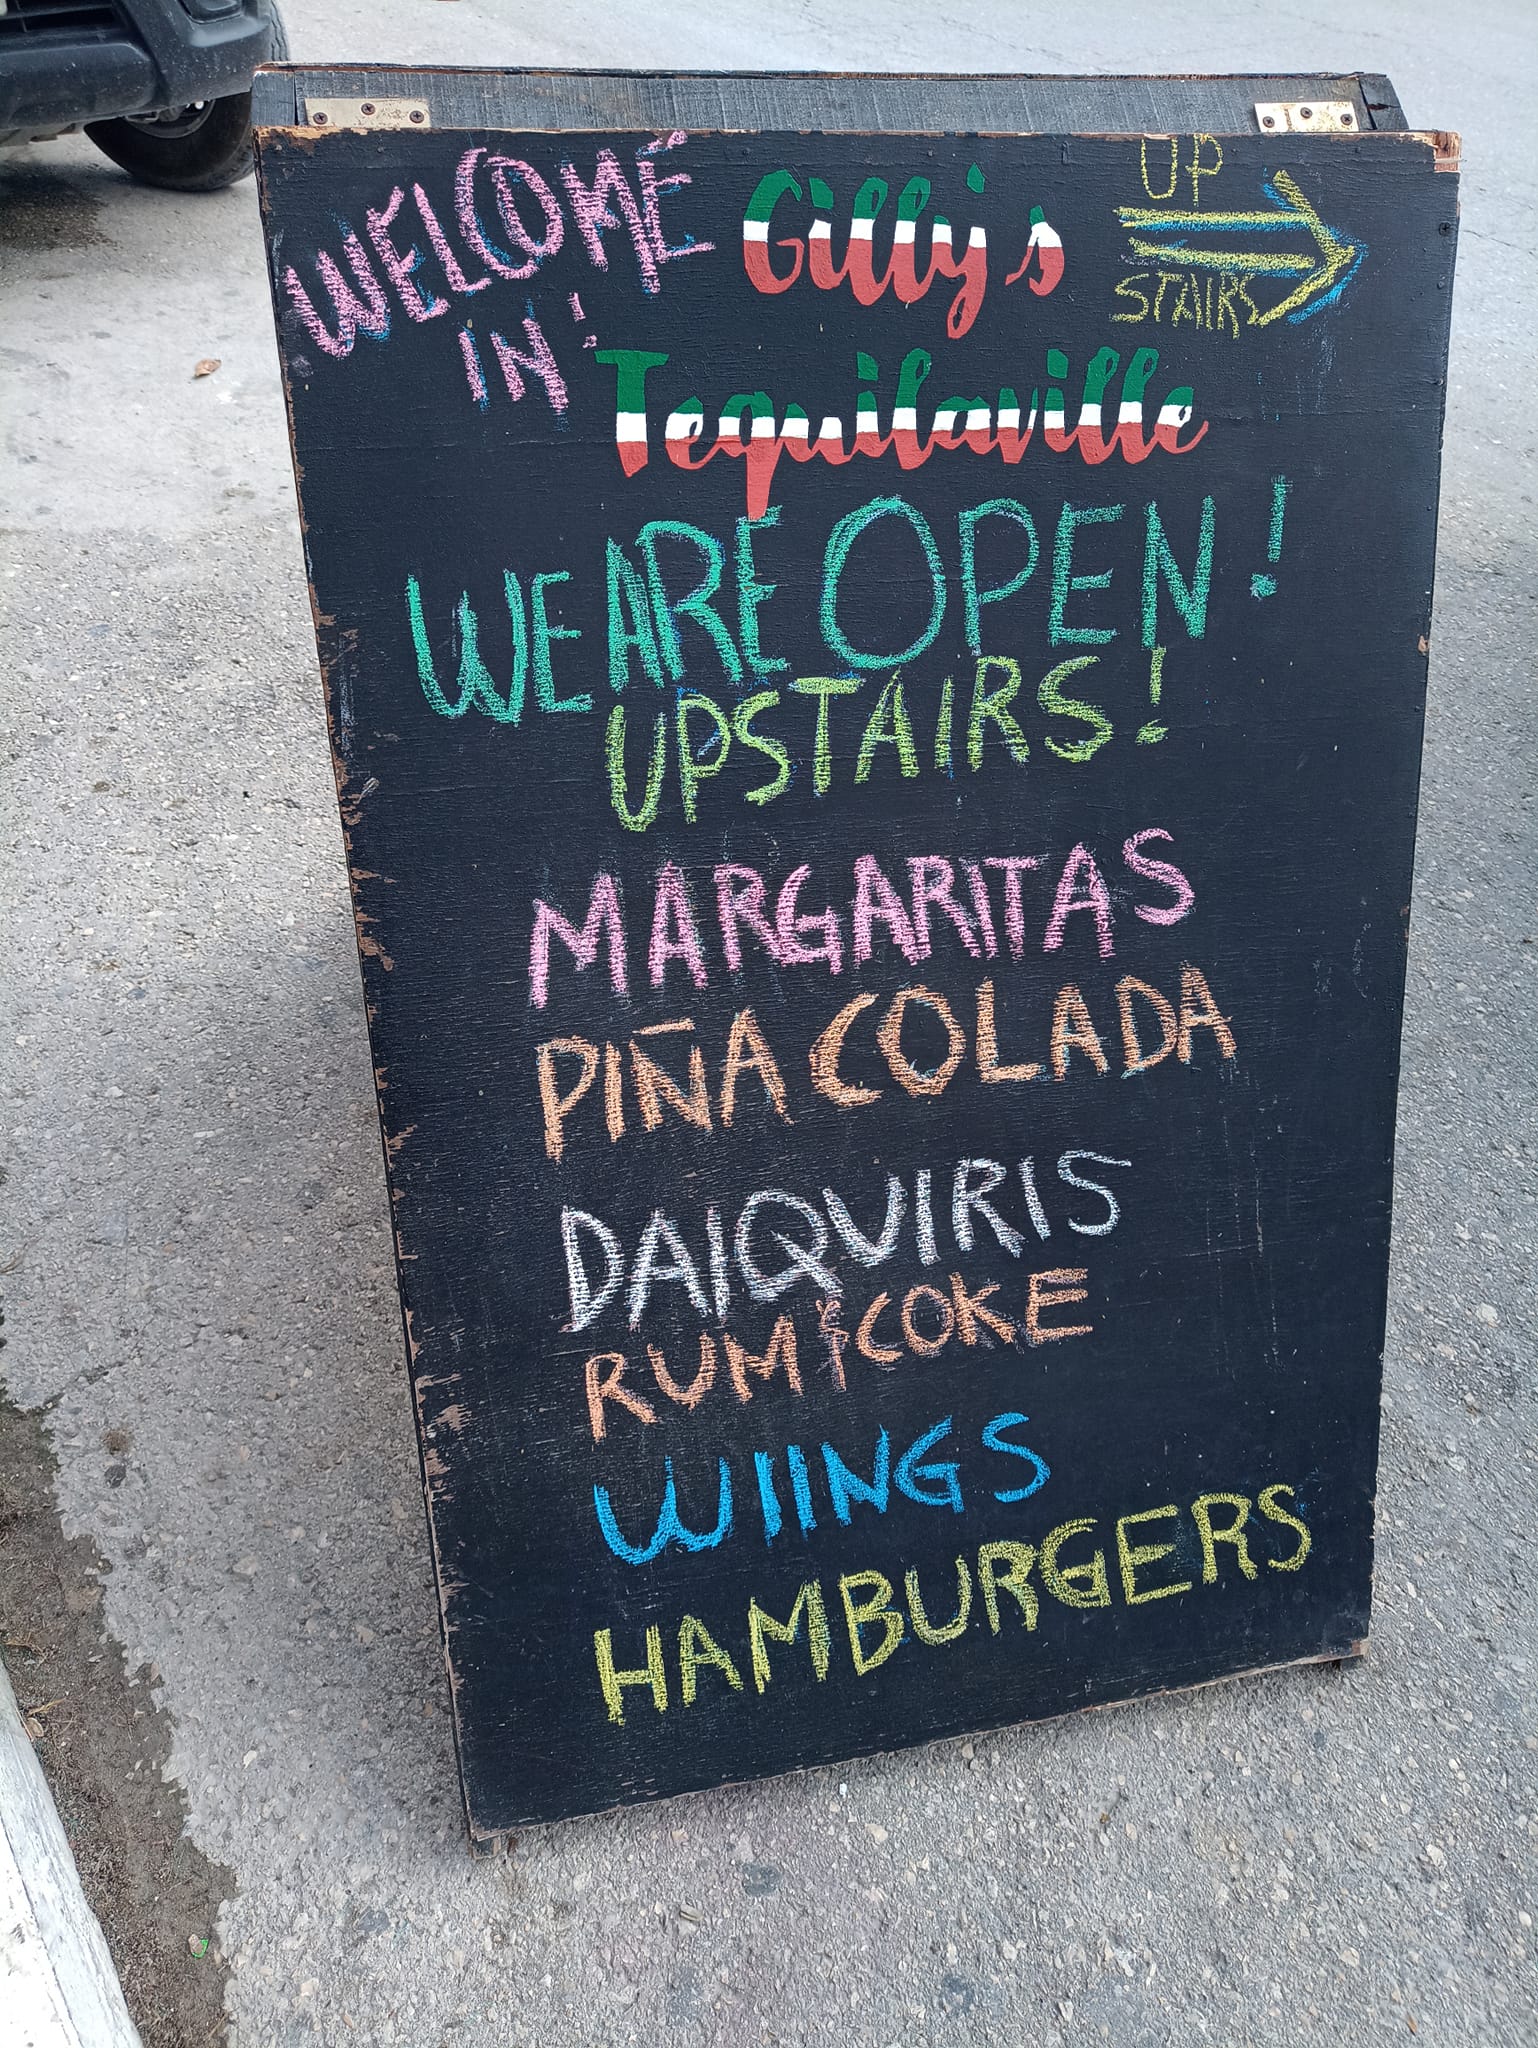 WELCOME
IN!
Gilly's
Tequilaville
UP
STAIRS
WE ARE OPEN!
UPSTAIRS!
MARGARITAS
PIÑA COLADA
DAIQUIRIS
RUM & COKE
WIINGS
HAMBURGERS